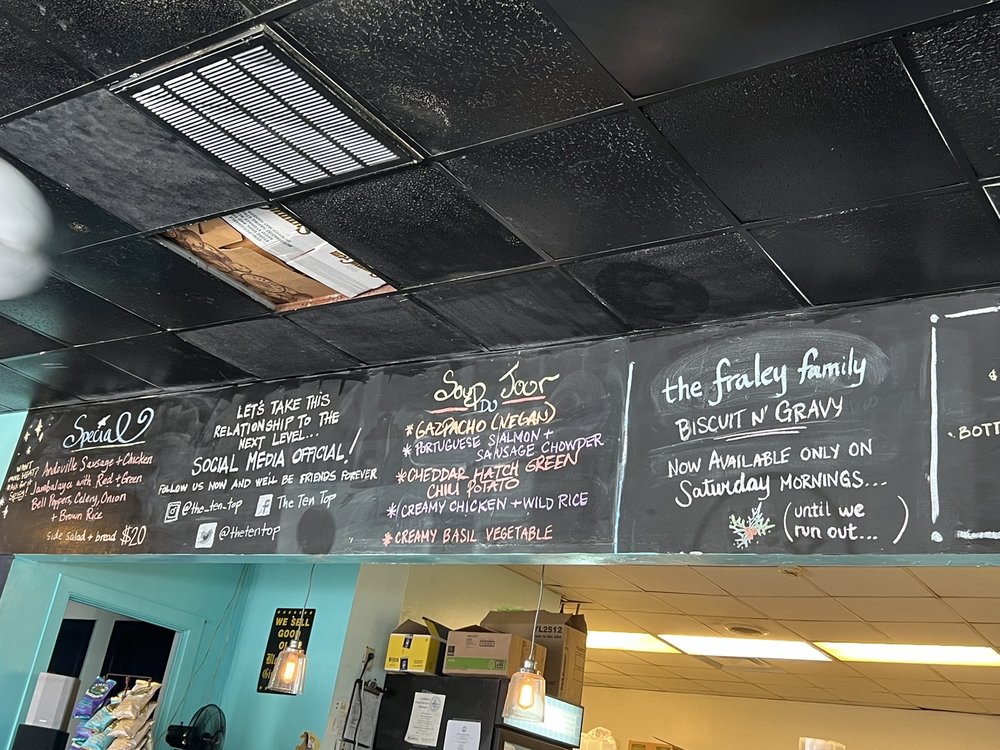 Special
WANT
MORE HEAT?
ASK FOR
Spicy!
Andoville Sausage + Chicken
Jambalaya with Red + Green
Bell Peppers, Celery, Onion
+ Brown Rice
side salad + bread $20
LET'S TAKE THIS
RELATIONSHIP TO THE
NEXT LEVEL...
SOCIAL MEDIA OFFICIAL!
FOLLOW US NOW AND WE'LL BE FRIENDS FOREVER
@the_ten_top
The Ten Top
@thetentop
Soup
DU
Jour
* GAZPACHO (VEGAN)
* PORTUGUESE SALMON +
SAUSAGE CHOWDER
* CHEDDAR HATCH GREEN
CHILI POTATO
* CREAMY CHICKEN + WILD RICE
* CREAMY BASIL VEGETABLE
the fraley family
BISCUIT N' GRAVY
NOW AVAILABLE ONLY ON
Saturday MORNINGS...
(until we
run out...)
$
• BOTT
WE SELL
GOOD
YL2512